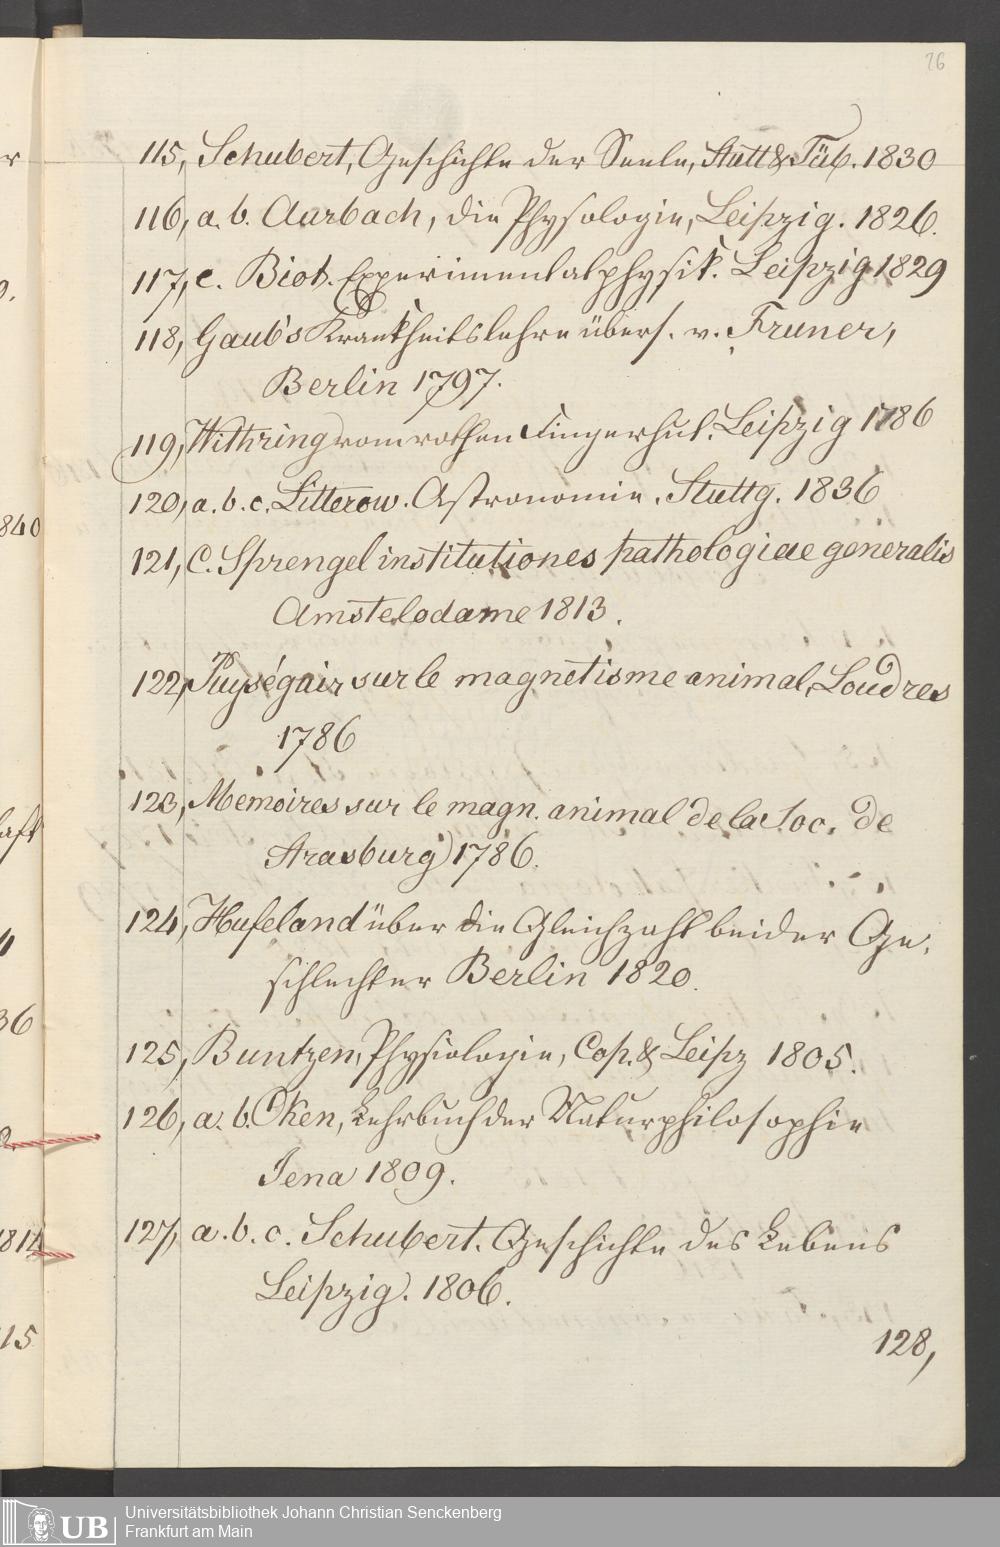 26
115, Schubert, Geschichte der Seele, Stutt & Tüb. 1830
116, a. b. Aurbach, die Physologie, Leipzig. 1826.
117, c. Biot. Experimentalphysik. Leipzig 1829
118, Gaub's Krankheitslehre übers. v. Fruner,
Berlin 1797.
119, Withring vom rothen Fingerhut. Leipzig 1786
120, a. b. c. Litterow. Astronomie. Stuttg. 1836
121, C. Sprengel institutiones pathologiae generalis
Amstelodame 1813.
122, Puységuir sur le magnetisme animal, Loudres
1786
123, Memoires sur le magn. animal de la Soc. de
Strasburg 1786.
124, Hufeland über die Gleichzahl beider Ge-
schlechter Berlin 1820.
125, Buntzen, Physiologie, Cop. & Leipz 1805.
126, a. b. Oken, Lehrbuch der Naturphilosophie
Jena 1809.
127, a. b. c. Schubert. Geschichte des Lebens
Leipzig. 1806.
128,
840
36
1814
15
UB
Universitätsbibliothek Johann Christian Senckenberg
Frankfurt am Main